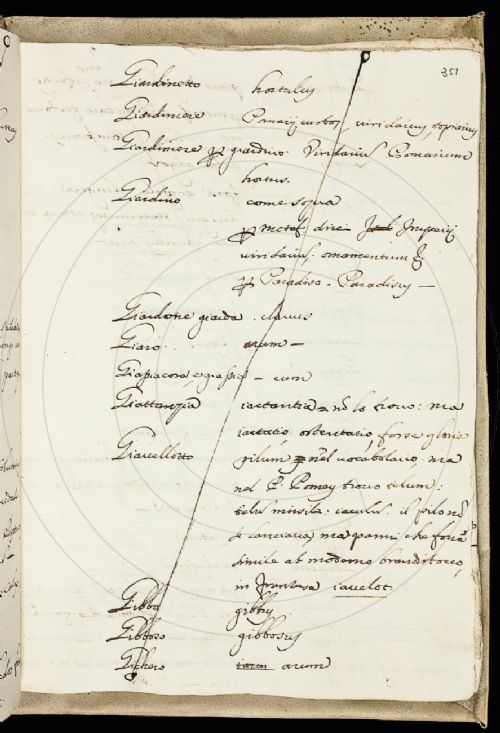 351
Giardinetto hortulus
Giardiniere Pomarij custos, viridarius, topiarius
Giardiniere p giardino. Viridarium Pomarium
hortus.
Giardino come sopra
p metaf. dire Imperij
viridarium. ornamentum
p Paradiso. Paradisus —
Giardone giarda. clavus
Giaro. arum —
— cum
Giattanzia iactantia nō lo trovo: ma
iactatio ostentatio, forse gloria
Giavellotto pilum nel vocabolario. ma
nel P. Pomey trovo telum:
telum missile: iaculum. il pilo nō
si lanciava ma parmi che fosse
simile al moderno brandistocco,
in franzese iavelot.
Gibbo gibbus
Gibboso gibbosus
Gichero arum